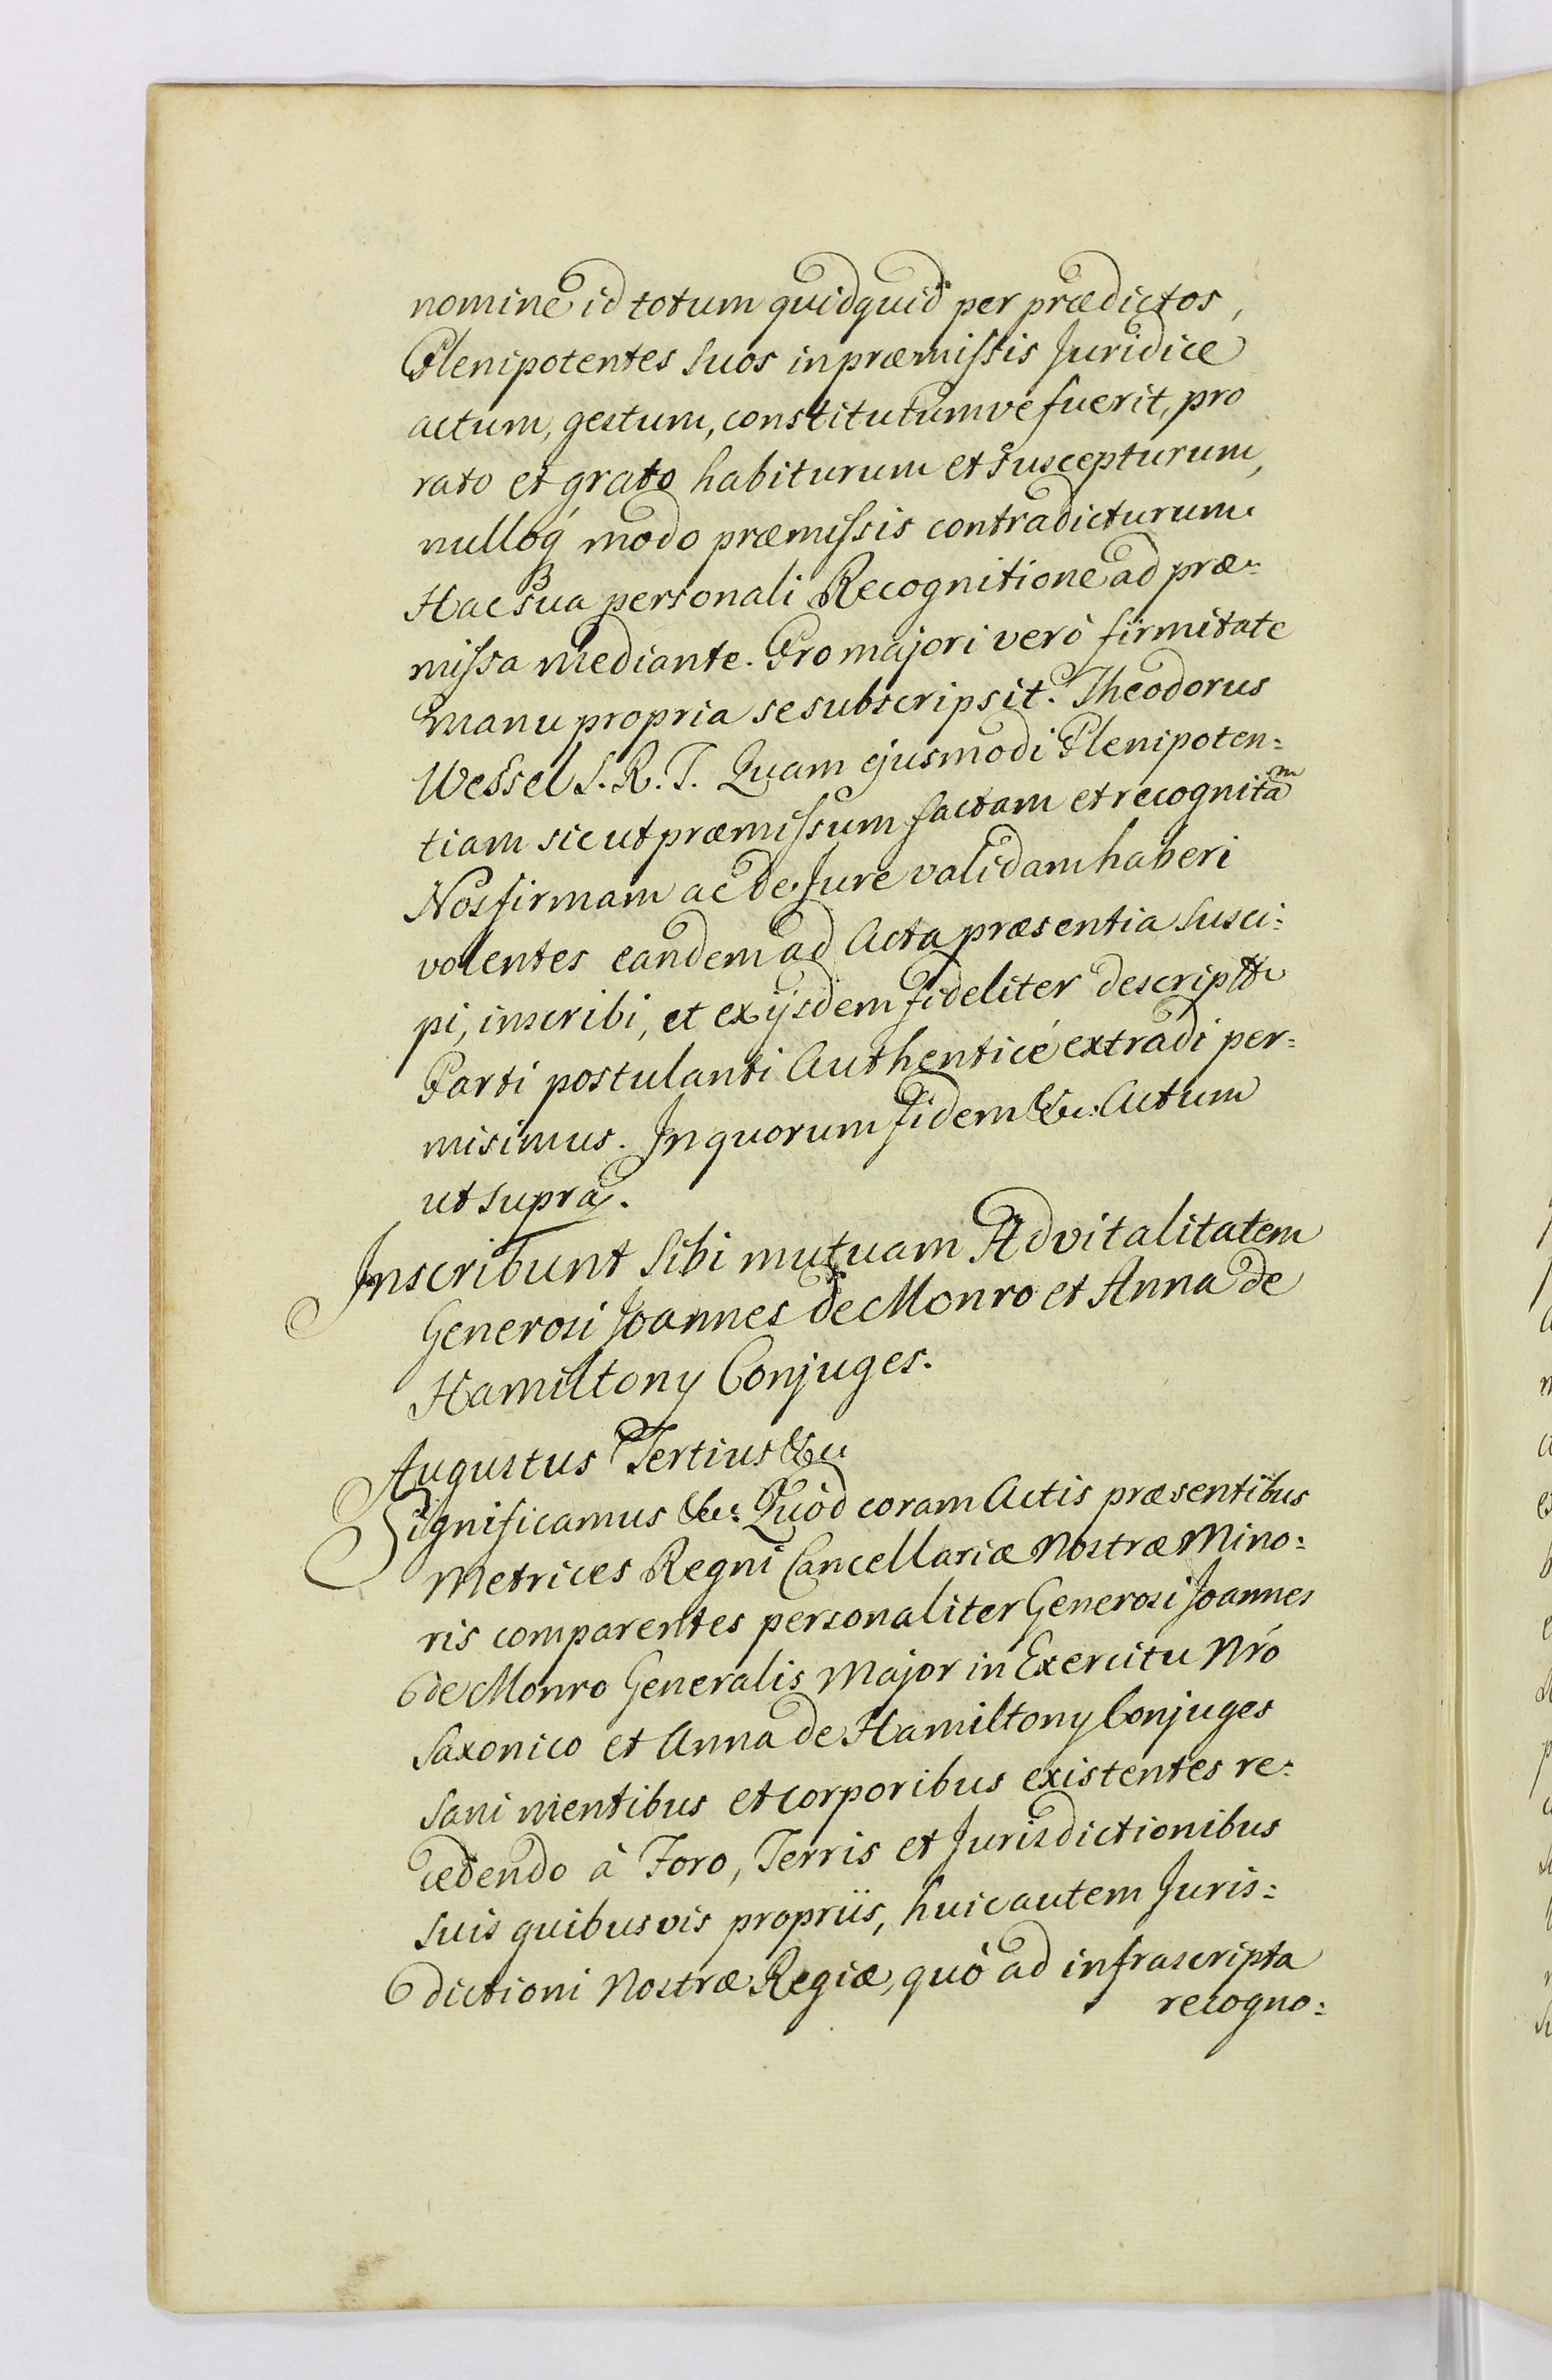 nomine id totum quidquid per prædictos,
Plenipotentes suos in præmissis Juridice
actum, gestum, constitutumve fuerit, pro
rato et grato habiturum et suscepturum,
nulloq́ modo præmissis contradicturum.
Hac sua personali Recognitione ad præ-
missa mediante. Pro majori verò firmitate
manu propria se subscripsit. Theodorus
Wessel S. R. T. Quam ejusmodi Plenipoten=
tiam sic ut præmissum factam et recognitam
Nos firmam ac de Jure validam haberi
volentes eandem ad Acta præsentia susci=
pi, inscribi, et ex ijsdem fideliter descriptā
Parti postulanti Authenticé extradi per=
misimus. In quorum fidem &c: Actum
ut supra.
Inscribunt sibi mutuam Advitalitatem
Generosi Joannes de Monro et Anna de
Hamiltony Conjuges.
Augustus Tertius &c
Significamus &c: Quòd coram Actis præsentibus
Metrices Regni Cancellariæ Nostræ Mino=
ris comparentes personaliter Generosi Joannes
de Monro Generalis Major in Exercitu Nr̃o
Saxonico et Anna de Hamiltony Conjuges
sani mentibus et corporibus existentes re=
cedendo à Foro, Terris et Jurisdictionibus
suis quibusvis propriis, huic autem Juris=
dictioni Nostræ Regiæ, quò ad infrascripta
recogno=